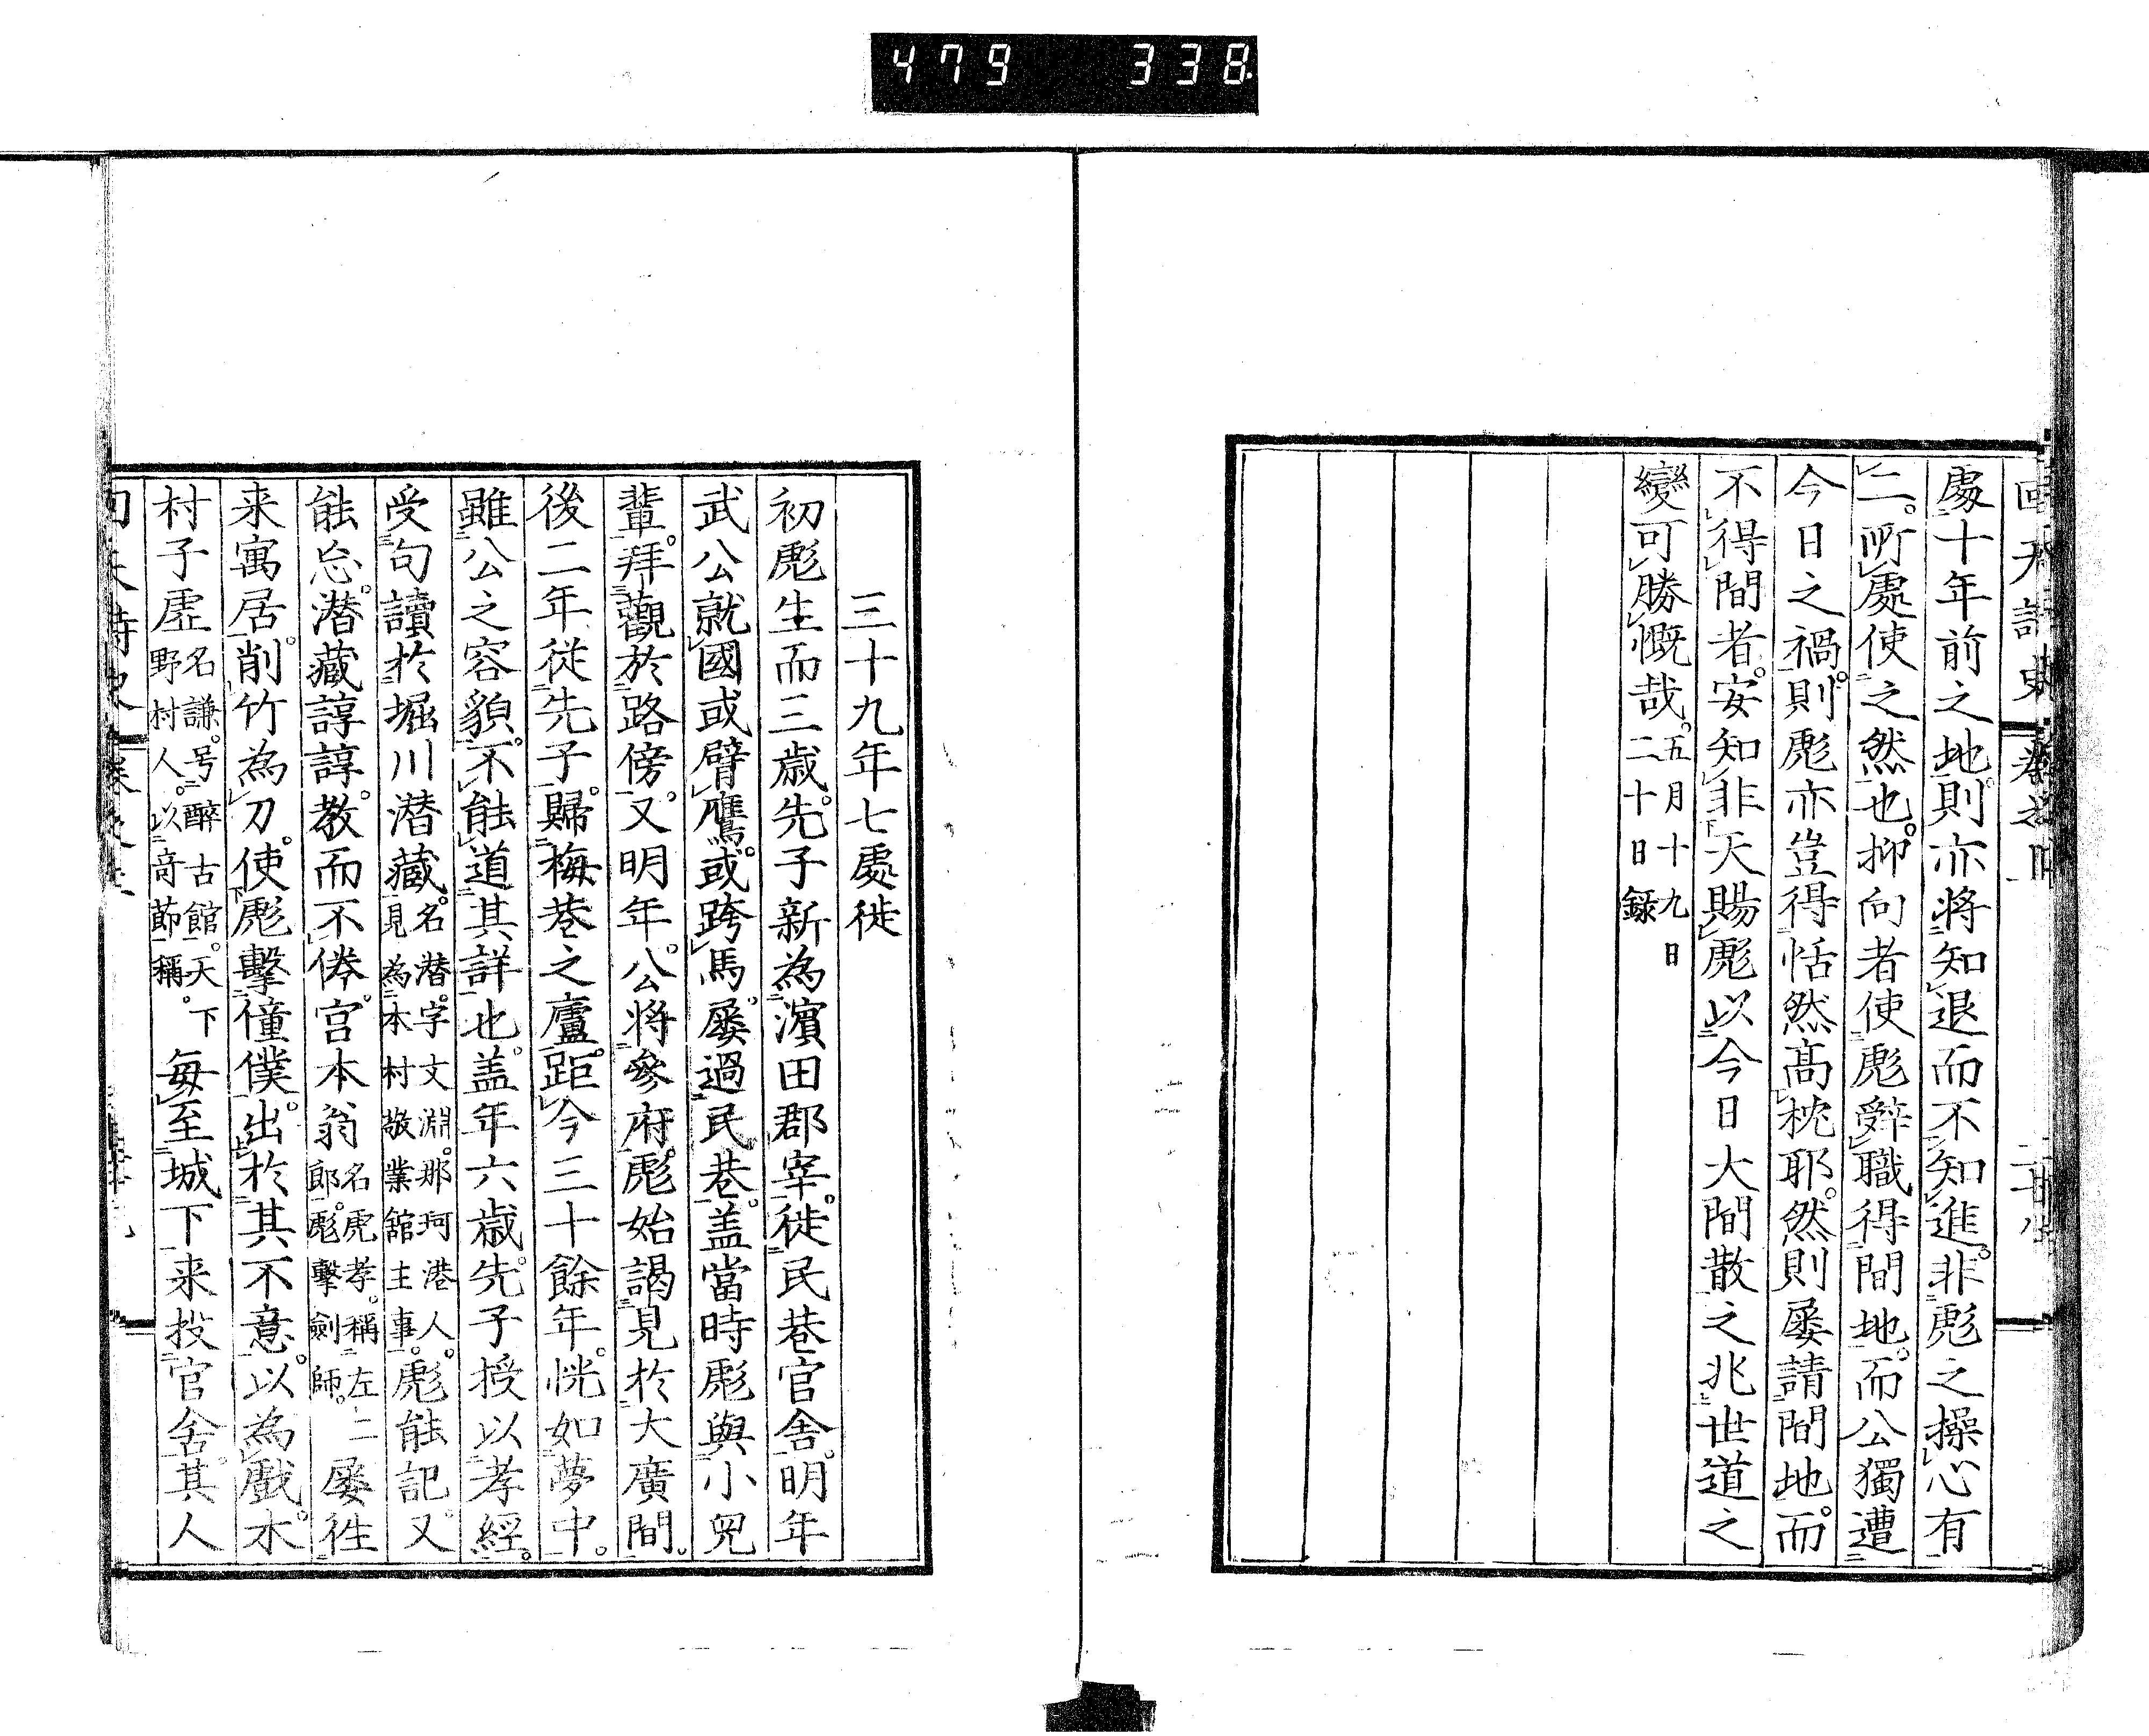 479 338
處十年前之地。則亦将知退而不知進。非彪之操心有
二。所處使之然也。抑向者使彪辤職得間地。而公獨遭
今日之禍。則彪亦豈得恬然髙枕耶。然則屡請間地。而
不得間者。安知非天賜彪以今日大間散之兆。世道之
變可勝慨哉。五月十九日
二十日録
三十九年七處徙
初彪生而三歳。先子新為濵田郡宰。徙民巷官舎。明年
武公就國或臂鷹。或跨馬。屡過民巷。盖當時彪與小兒
輩。拜觀於路傍。又明年。公将參府。彪始謁見於大廣間。
後二年従先子。歸梅巷之廬。距今三十餘年。恍如夢中。
雖公之容貌。不能道其詳也。盖年六歳。先子授以孝經。
受句讀於堀川潜藏。名潜。字文淵。那珂港人。
見為本村敬業舘主事。彪能記。又
能忘。潜藏諄諄。教而不倦。宮本翁名虎孝。稱左二
郎。彪擊劍師。屡徃
来寓居。削竹為刀。使彪擊僮僕。出於其不意。以為戯。木
村子虚名謙。号醉古館。天下
野村人。以竒節稱。毎至城下来投官舎。其人